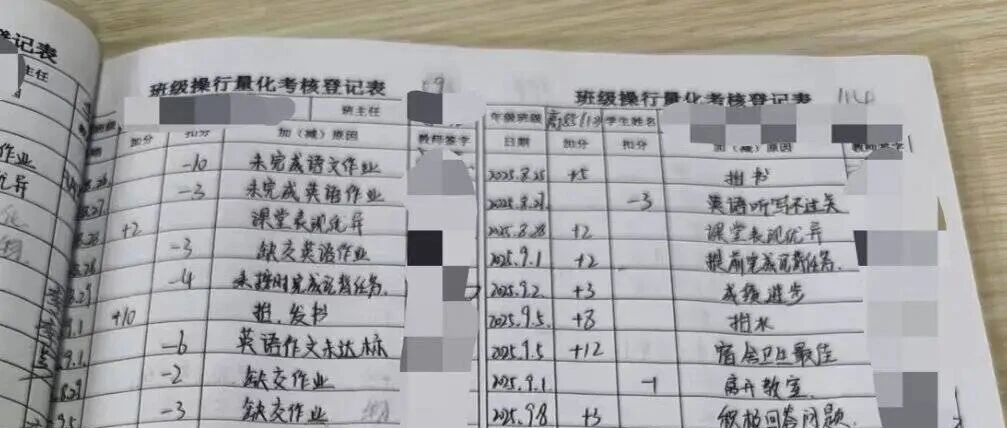 登记表
主任
作业
优异
班级操行量化考核登记表
班主任
加分 扣分 加（减）原因 教师签字
-10 未完成语文作业
8.27 -3 未完成英语作业
+2 课堂表现优异
-3 缺交英语作业
8.29 -4 未按时完成背任务
9.1 +10 搬、发书
9.1 -6 英语作文未达标
8.29 -2 缺交作业
9.5 -3 缺交作业
班级操行量化考核登记表
年级班级 学生姓名
日期 加分 扣分 加（减）原因 教师签字
2025.8.25 +5 搬书
2025.8.27 -3 英语听写不过关
2025.8.28 +2 课堂表现优异
2025.9.1 +2 提前完成背任务
2025.9.2 +3 成绩进步
2025.9.5 +8 搬水
2025.9.5 +12 宿舍卫生最佳
2025.9.1 -1 离开教室
2025.9.8 +3 积极回答问题